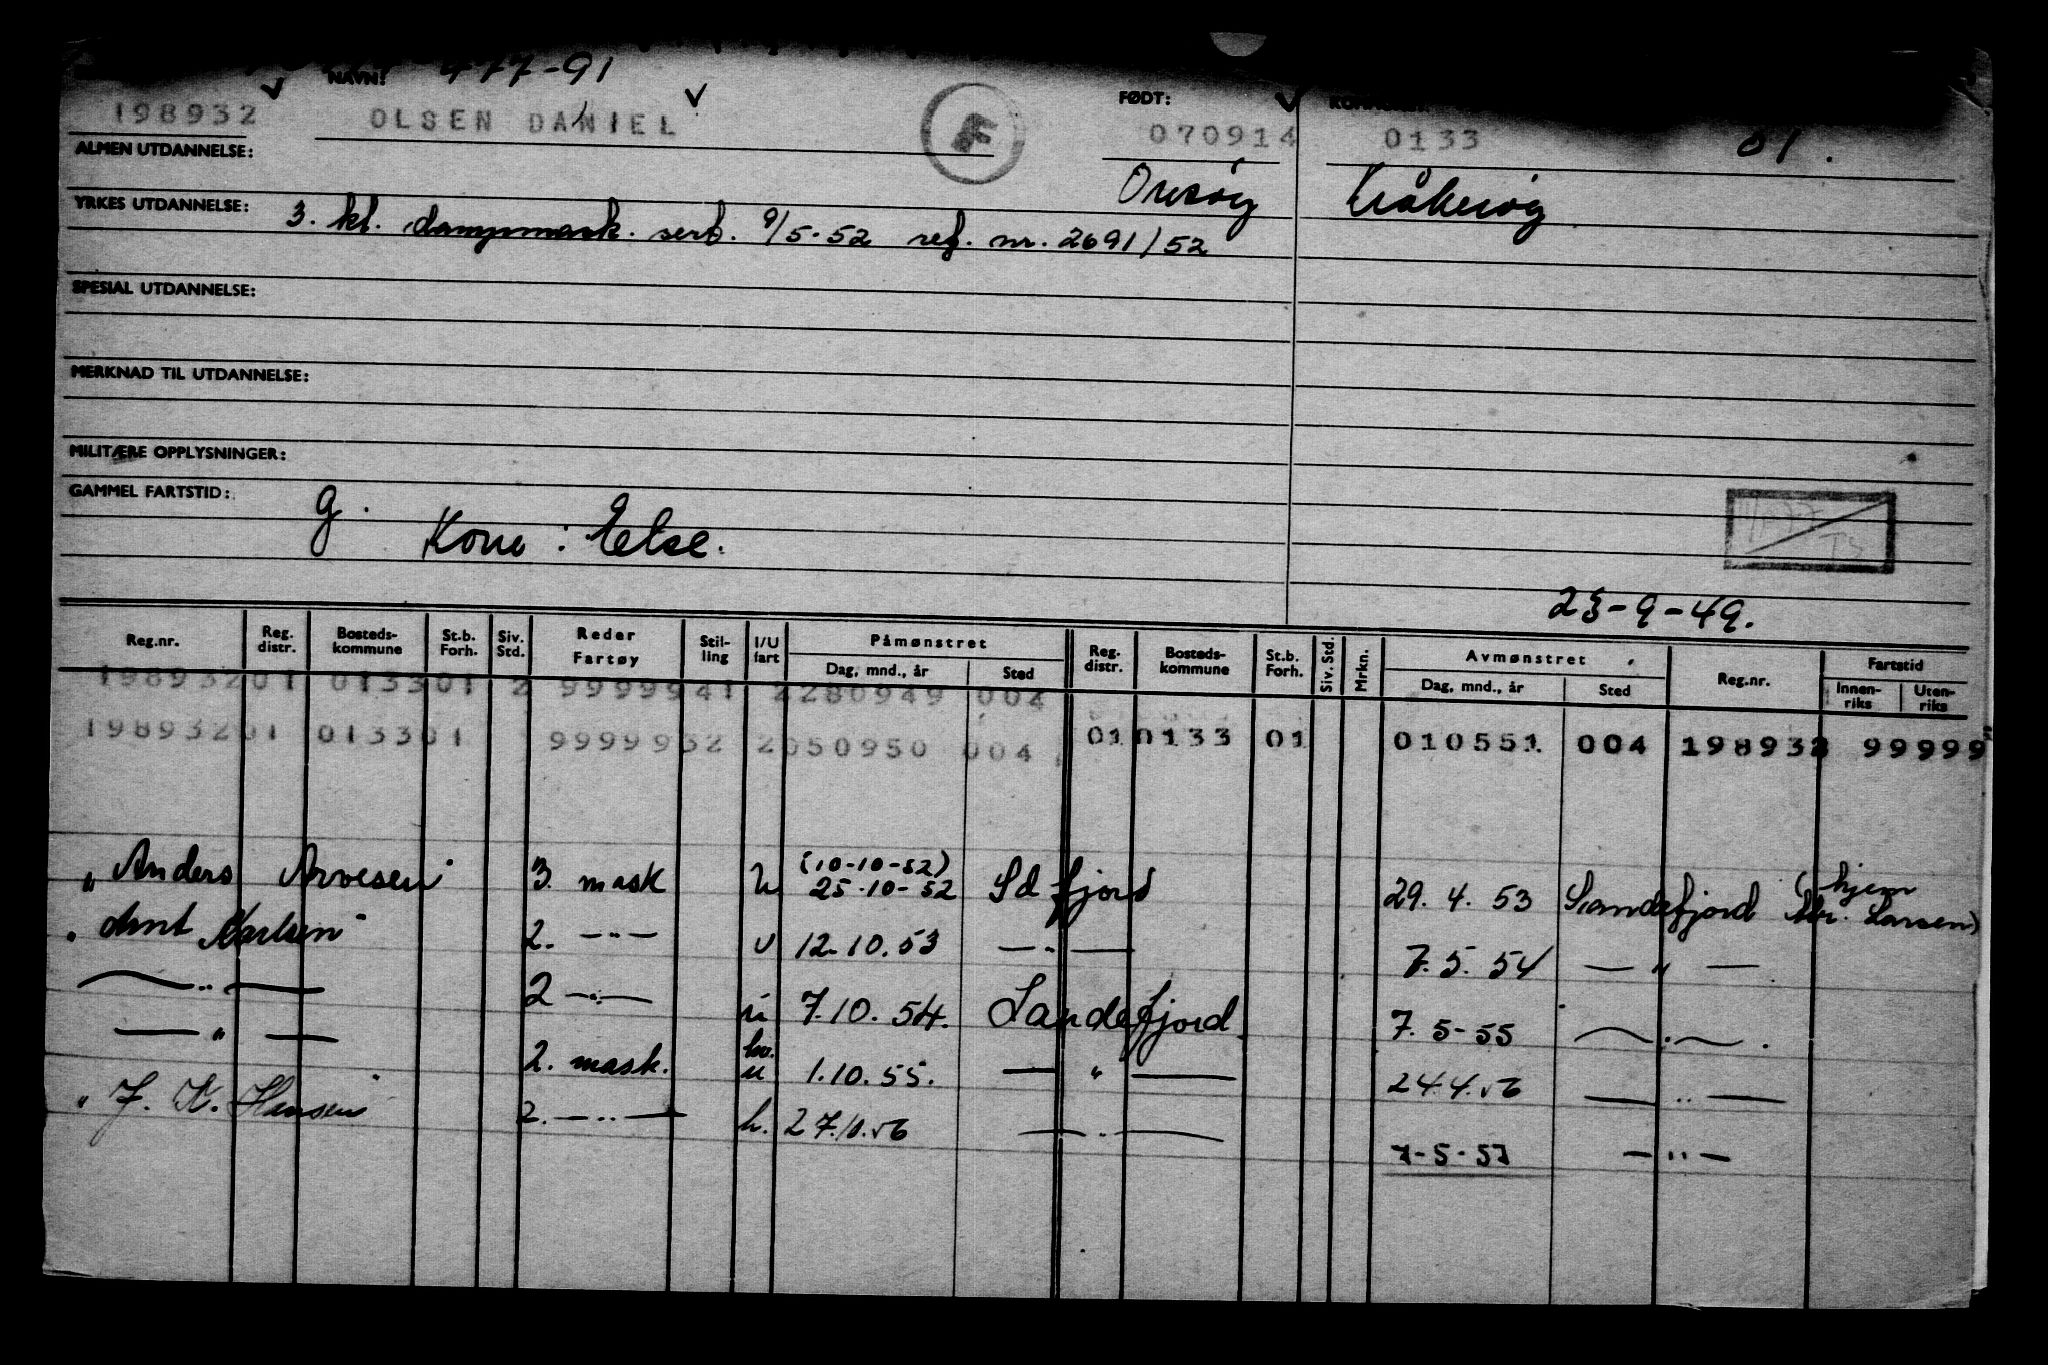 477-91
NAVN: FØDT:
198932 OLSEN DANIEL 070914 0133 01.
ALMEN UTDANNELSE: Onsøy Kråkerøy
YRKES UTDANNELSE: 3. kl. dampmask. sert. 9/5-52 ref. nr. 2691/52
SPESIAL UTDANNELSE:
MERKNAD TIL UTDANNELSE:
MILITÆRE OPPLYSNINGER:
GAMMEL FARTSTID: g.
Kone: Else.
23-9-49.
Reg.nr. Reg. distr. Bosteds- kommune St.b. Forh. Siv. Std. Reder Fartøy Stil- ling I/U fart Påmønstret Dag, mnd., år Sted Reg. distr. Bosteds- kommune St.b. Forh. Siv. Std. Mrkn. Avmønstret Dag, mnd., år Sted Reg.nr. Fartstid Innen- riks Uten- riks
19893201 013301 2 9999941 2280949 004
19893201 013301 9999932 2050950 004 01 0133 01 010551 004 198932 99999
(10-10-52) hjem
"Anders Arvesen" 3. mask u 25-10-52 Sdfjord 29. 4. 53 Sandefjord (Thr. Larsen)
"Arnt Karlsen" 2. —"— u 12.10.53 —"— 7.5. 54 —"—
—"— 2 —"— u 7.10. 54. Sandefjord 7. 5-55 —"—.
—"— 2. mask. hv. u 1.10.55. —"— 24.4.56 —"—
"J. K. Hansen" 2. —"— h. 27.10.56 —"— 7-5-57 —"—